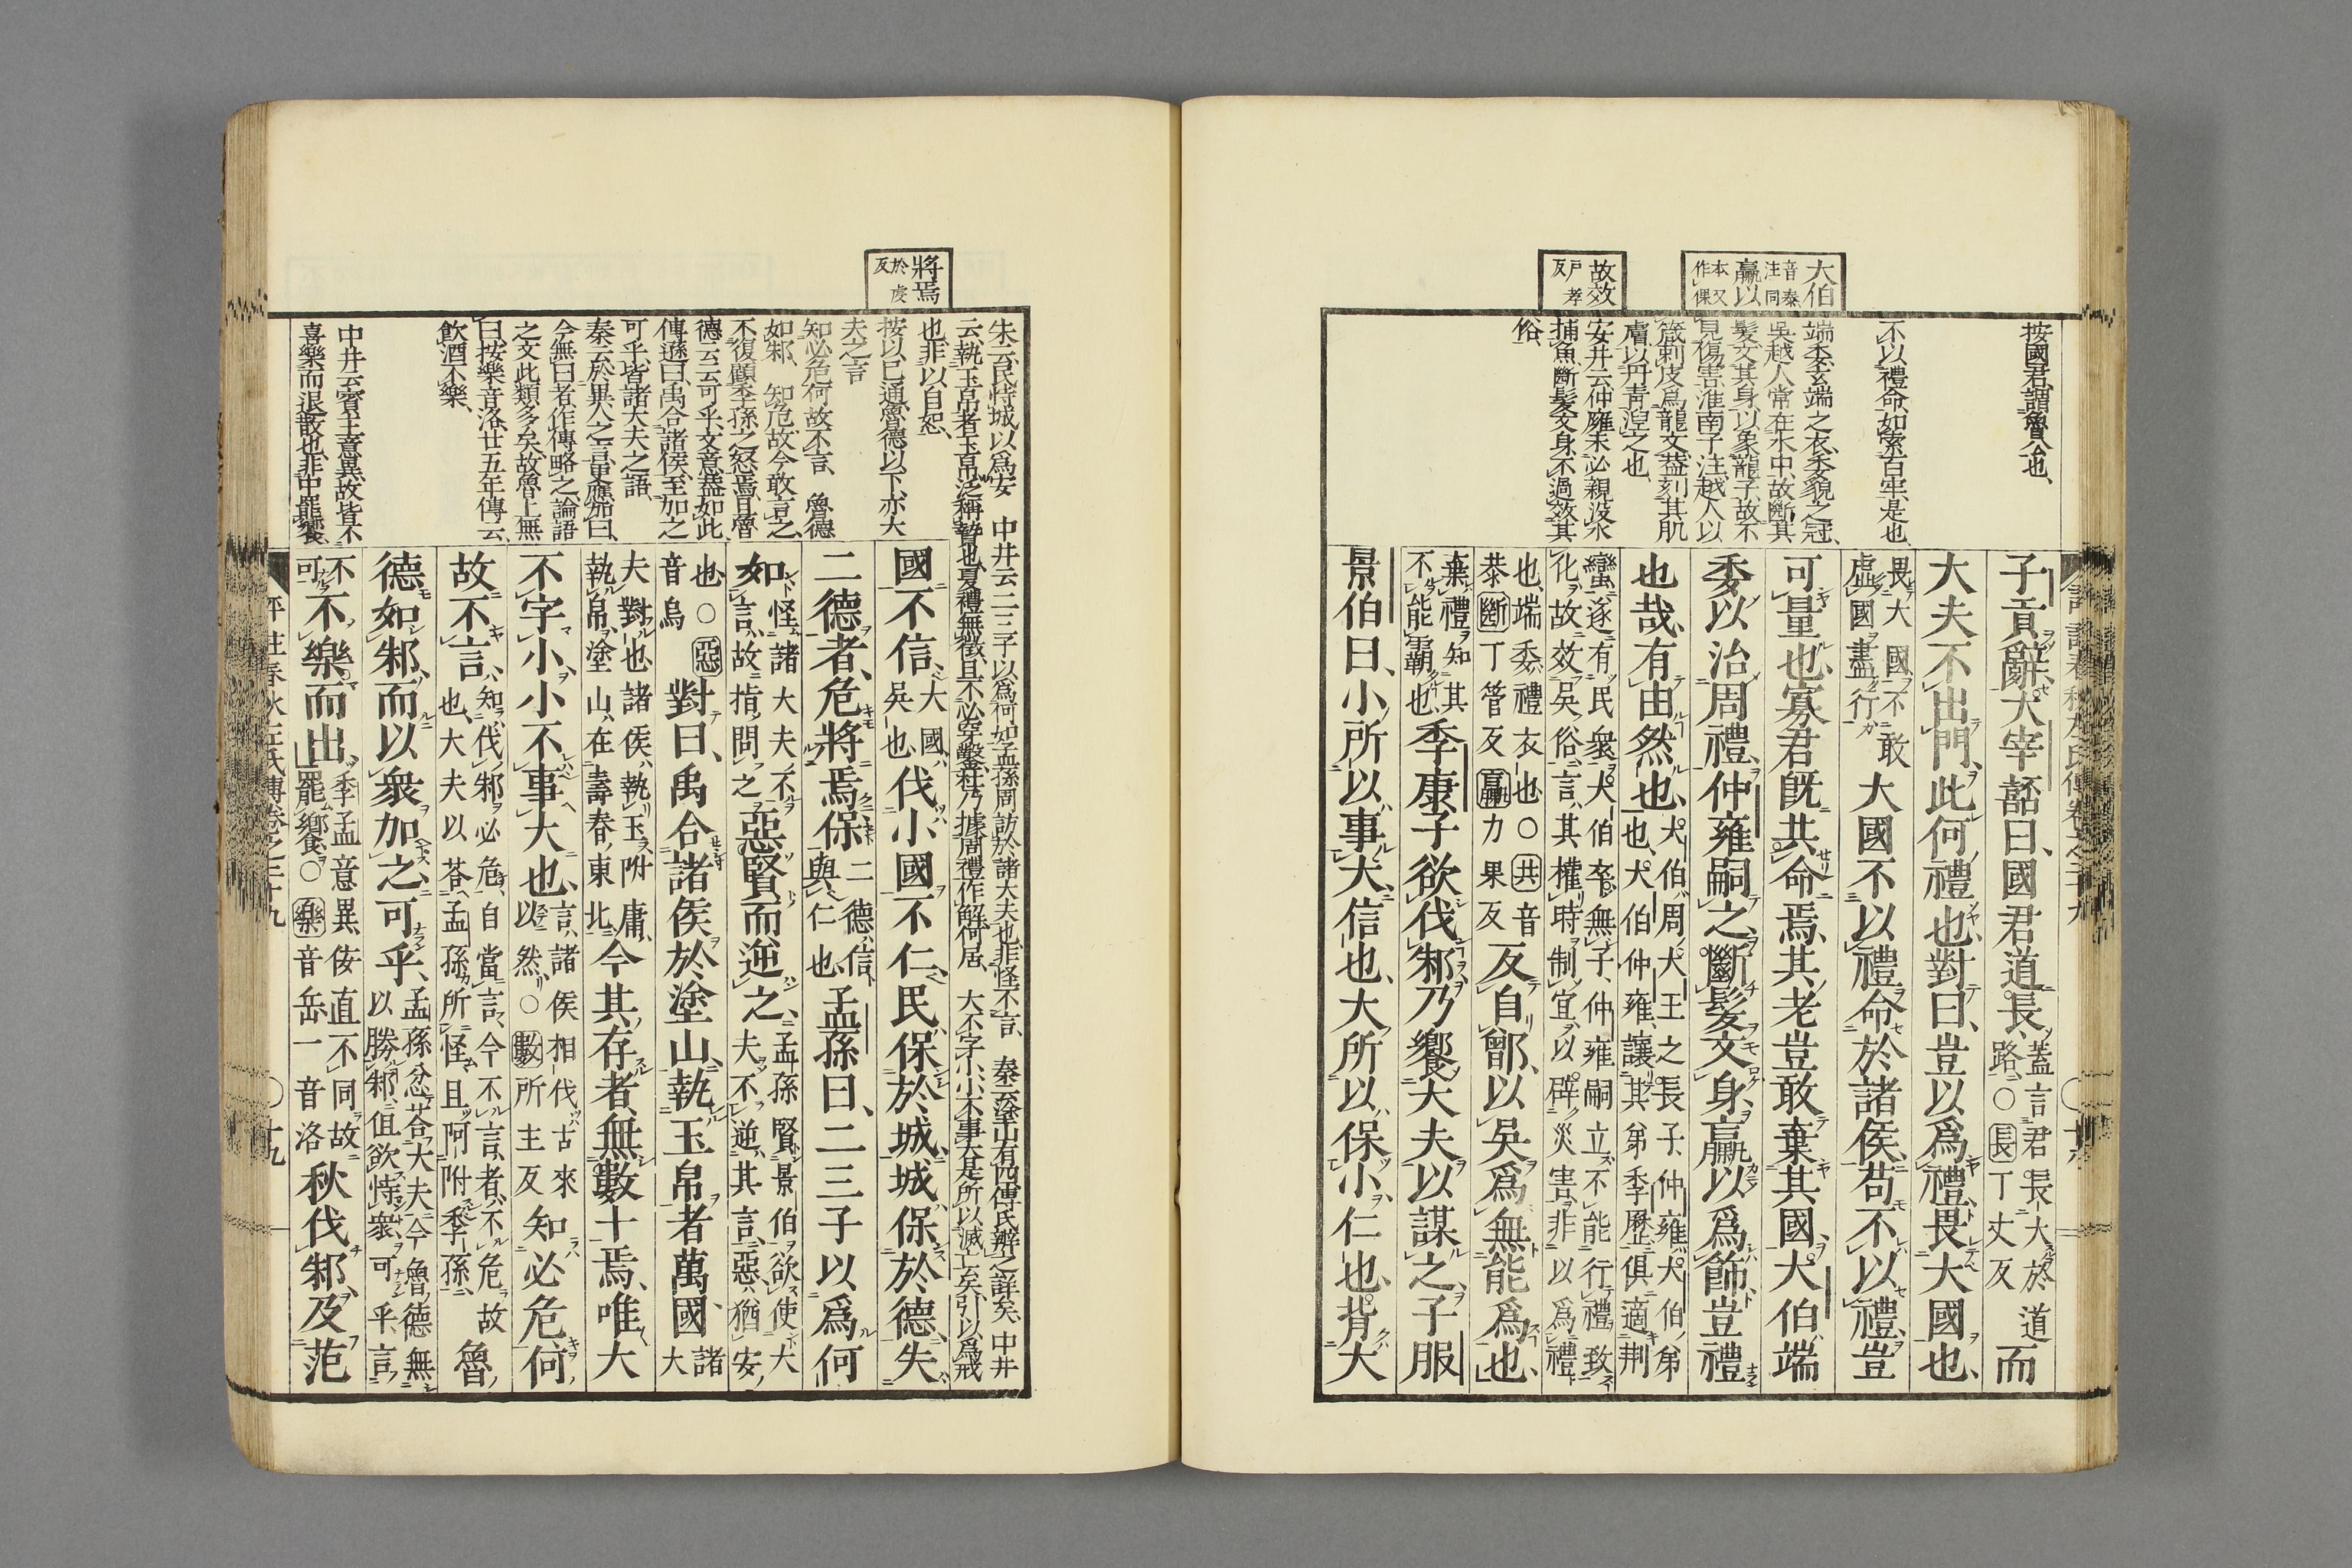 大伯
音泰
注同
贏以
本又
作倮
故效
戶孝
反
按國君謂魯公也、
不以禮命、如索百牢是也、
端委玄端之衣、委貌之冠、
吳越人常在水中、故斷其
髮文其身、以象龍子、故不
見傷害、淮南子注、越人以
箴刺皮爲龍文、蓋刻其肌
膚、以丹青涅之也、
安井云仲雍未必親沒水
捕魚、斷髮文身、不過效其
俗、
子貢辭、大宰嚭曰、國君道長、
蓋言君長大於道
路、○長丁丈反
而
大夫不出門、此何禮也、對曰、豈以爲禮、畏大國也、
畏大國不敢
虛國盡行
大國不以禮命於諸侯、苟不以禮、豈
可量也、寡君既共命焉、其老豈敢棄其國、大伯端
委以治周禮、仲雍嗣之、斷髮文身、贏以爲飾、豈禮
也哉、有由然也、
大伯周大王之長子、仲雍大伯弟
也、大伯仲雍讓其弟季歷俱適荆
蠻、遂有民衆、大伯卒無子、仲雍嗣立、不能行禮致
化、故效吳俗、言其權時制宜、以辟災害、非以爲禮
也、端委禮衣也○共音
恭斷丁管反贏力果反
反自鄫、以吳爲無能爲也、
棄禮知其
不能霸也、
季康子欲伐邾、乃饗大夫以謀之、子服
景伯曰、小所以事大信也、大所以保小仁也、背大
將焉
於虔
反
朱云民恃城以爲安　中井云二三子以爲何如、孟孫周訪於諸大夫也、非怪不言、　秦云塗山有四、傅氏辨之詳矣、中井
云執玉帛者、玉帛泛稱贄也、夏禮無徵、且不必穿鑿、杜乃據周禮作解、何居、　大不字小、小不事大、是所以滅亡矣、引以爲戒
也、非以自恕、
按以已通、魯德以下亦大
夫之言
知必危何故不言、　魯德
如邾、　知危故今敢言之、
不復顧季孫之怒焉、且魯
德云云可乎、文意蓋如此
傳遜曰、禹合諸侯、至加之
可乎、皆諸大夫之語、
秦云於異人之言、更應加曰、
今無曰者、作傳略之、論語
之文此類多矣、故魯上無
曰、按樂音洛、廿五年傳云、
飲酒不樂、
中井云賓主意異、故皆不
喜樂而退散也、非中罷饗、
國不信、
大國
吳也
伐小國不仁、民保於城、城保於德、失
二德者、危將焉保
二德信
與仁也
孟孫曰、二三子以爲何
如、
怪諸大夫不
言、故指問之
惡賢而逆之、
孟孫賢景伯欲使大
夫不逆其言、惡猶安
也○惡
音烏
對曰、禹合諸侯於塗山、執玉帛者萬國、
諸大
夫對也、諸侯執玉附庸
執帛、塗山、在壽春東北
今其存者、無數十焉、唯大
不字小、小不事大也、
言諸侯相伐古來
以然○數所主反
知必危、何
故不言、
知伐邾必危自當言、今不言者、不危故
也、大夫以荅孟孫所怪、且阿附季孫、
魯
德如邾、而以衆加之、可乎、
孟孫忿荅大夫今魯德無
以勝邾、但欲恃衆可乎、言
不
可
不樂而出、
季孟意異侫直不同故
罷饗○樂音岳一音洛
秋伐邾、及范